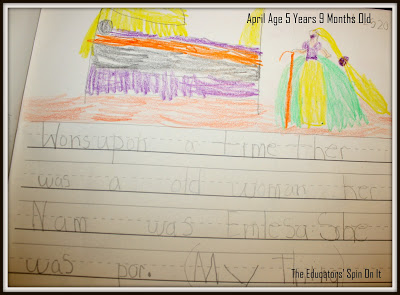 April Age 5 Years 9 Months Old
Wonsupon a time ther
was a old woman her
Nam was Emlesu She
was por. (My Thing)
The Educators' Spin On It